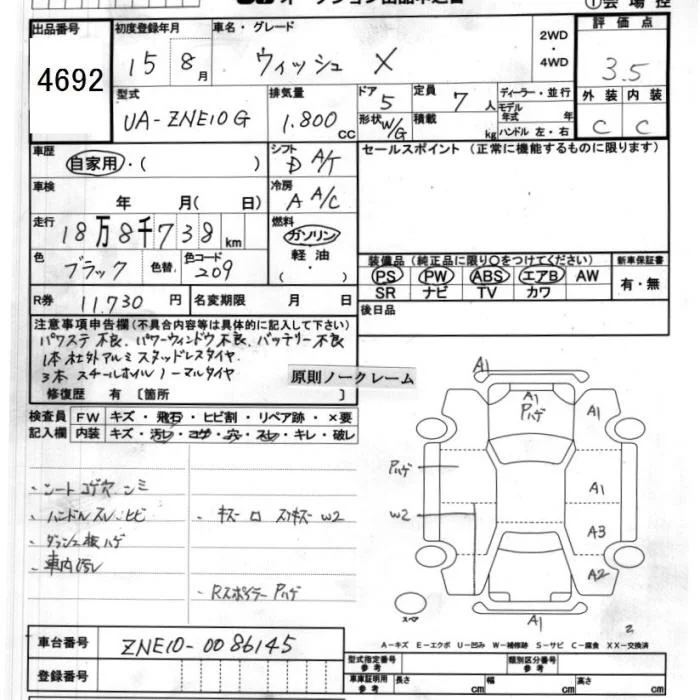 出品番号 初度登録年月 車名・グレード 2WD ・ 4WD 評価点
4692 15 8月 ウィッシュ X 3.5
型式 排気量 ドア 5 定員 7人 ディーラー・並行 外装 内装
UA-ZNE10G 1.800 cc 形状 W/G 積載 kg モデル年式 年 C C
ハンドル 左・右
車歴 自家用・( ) シフト D A/T セールスポイント (正常に機能するものに限ります)
車検 年 月( 日) 冷房 A A/C
走行 18万8千738km 燃料 ガソリン・軽油・( )
色 ブラック 色替 色コード 209
装備品 (純正品に限り○をつけてください) 新車保証書
PS PW ABS エアB AW 有・無
SR ナビ TV カワ
R券 11.730円 名変期限 月 日 後日品
注意事項申告欄(不具合内容等は具体的に記入して下さい)
パワステ不良、パワーウィンドウ不良、バッテリー不良
1本社外アルミスタッドレスタイヤ
3本 スチールホイルノーマルタイヤ
原則ノークレーム
修復歴 有 [箇所 ]
検査員記入欄 FW キズ・飛石・ヒビ割・リペア跡・×要
内装 キズ・汚レ・コゲ・穴・スレ・キレ・破レ
・シートコゲ穴.シミ
・ハンドルスレ.ヒビ ・キズ 口 スリキズ W2
・ダッシュ板ハゲ
・車内汚レ
・Rスポイラー Pハゲ
A1
A1
Pハゲ
A1
Pハゲ
A1
W2
A3
A2
スペア
A1
2
A-キズ E-エクボ U-凹み W-補修跡 S-サビ C-腐食 XX-交換済
車台番号 ZNE10-0086145
登録番号
型式指定番号参考 類別区分番号参考
車庫証明用参考 長さ cm 幅 cm 高さ cm